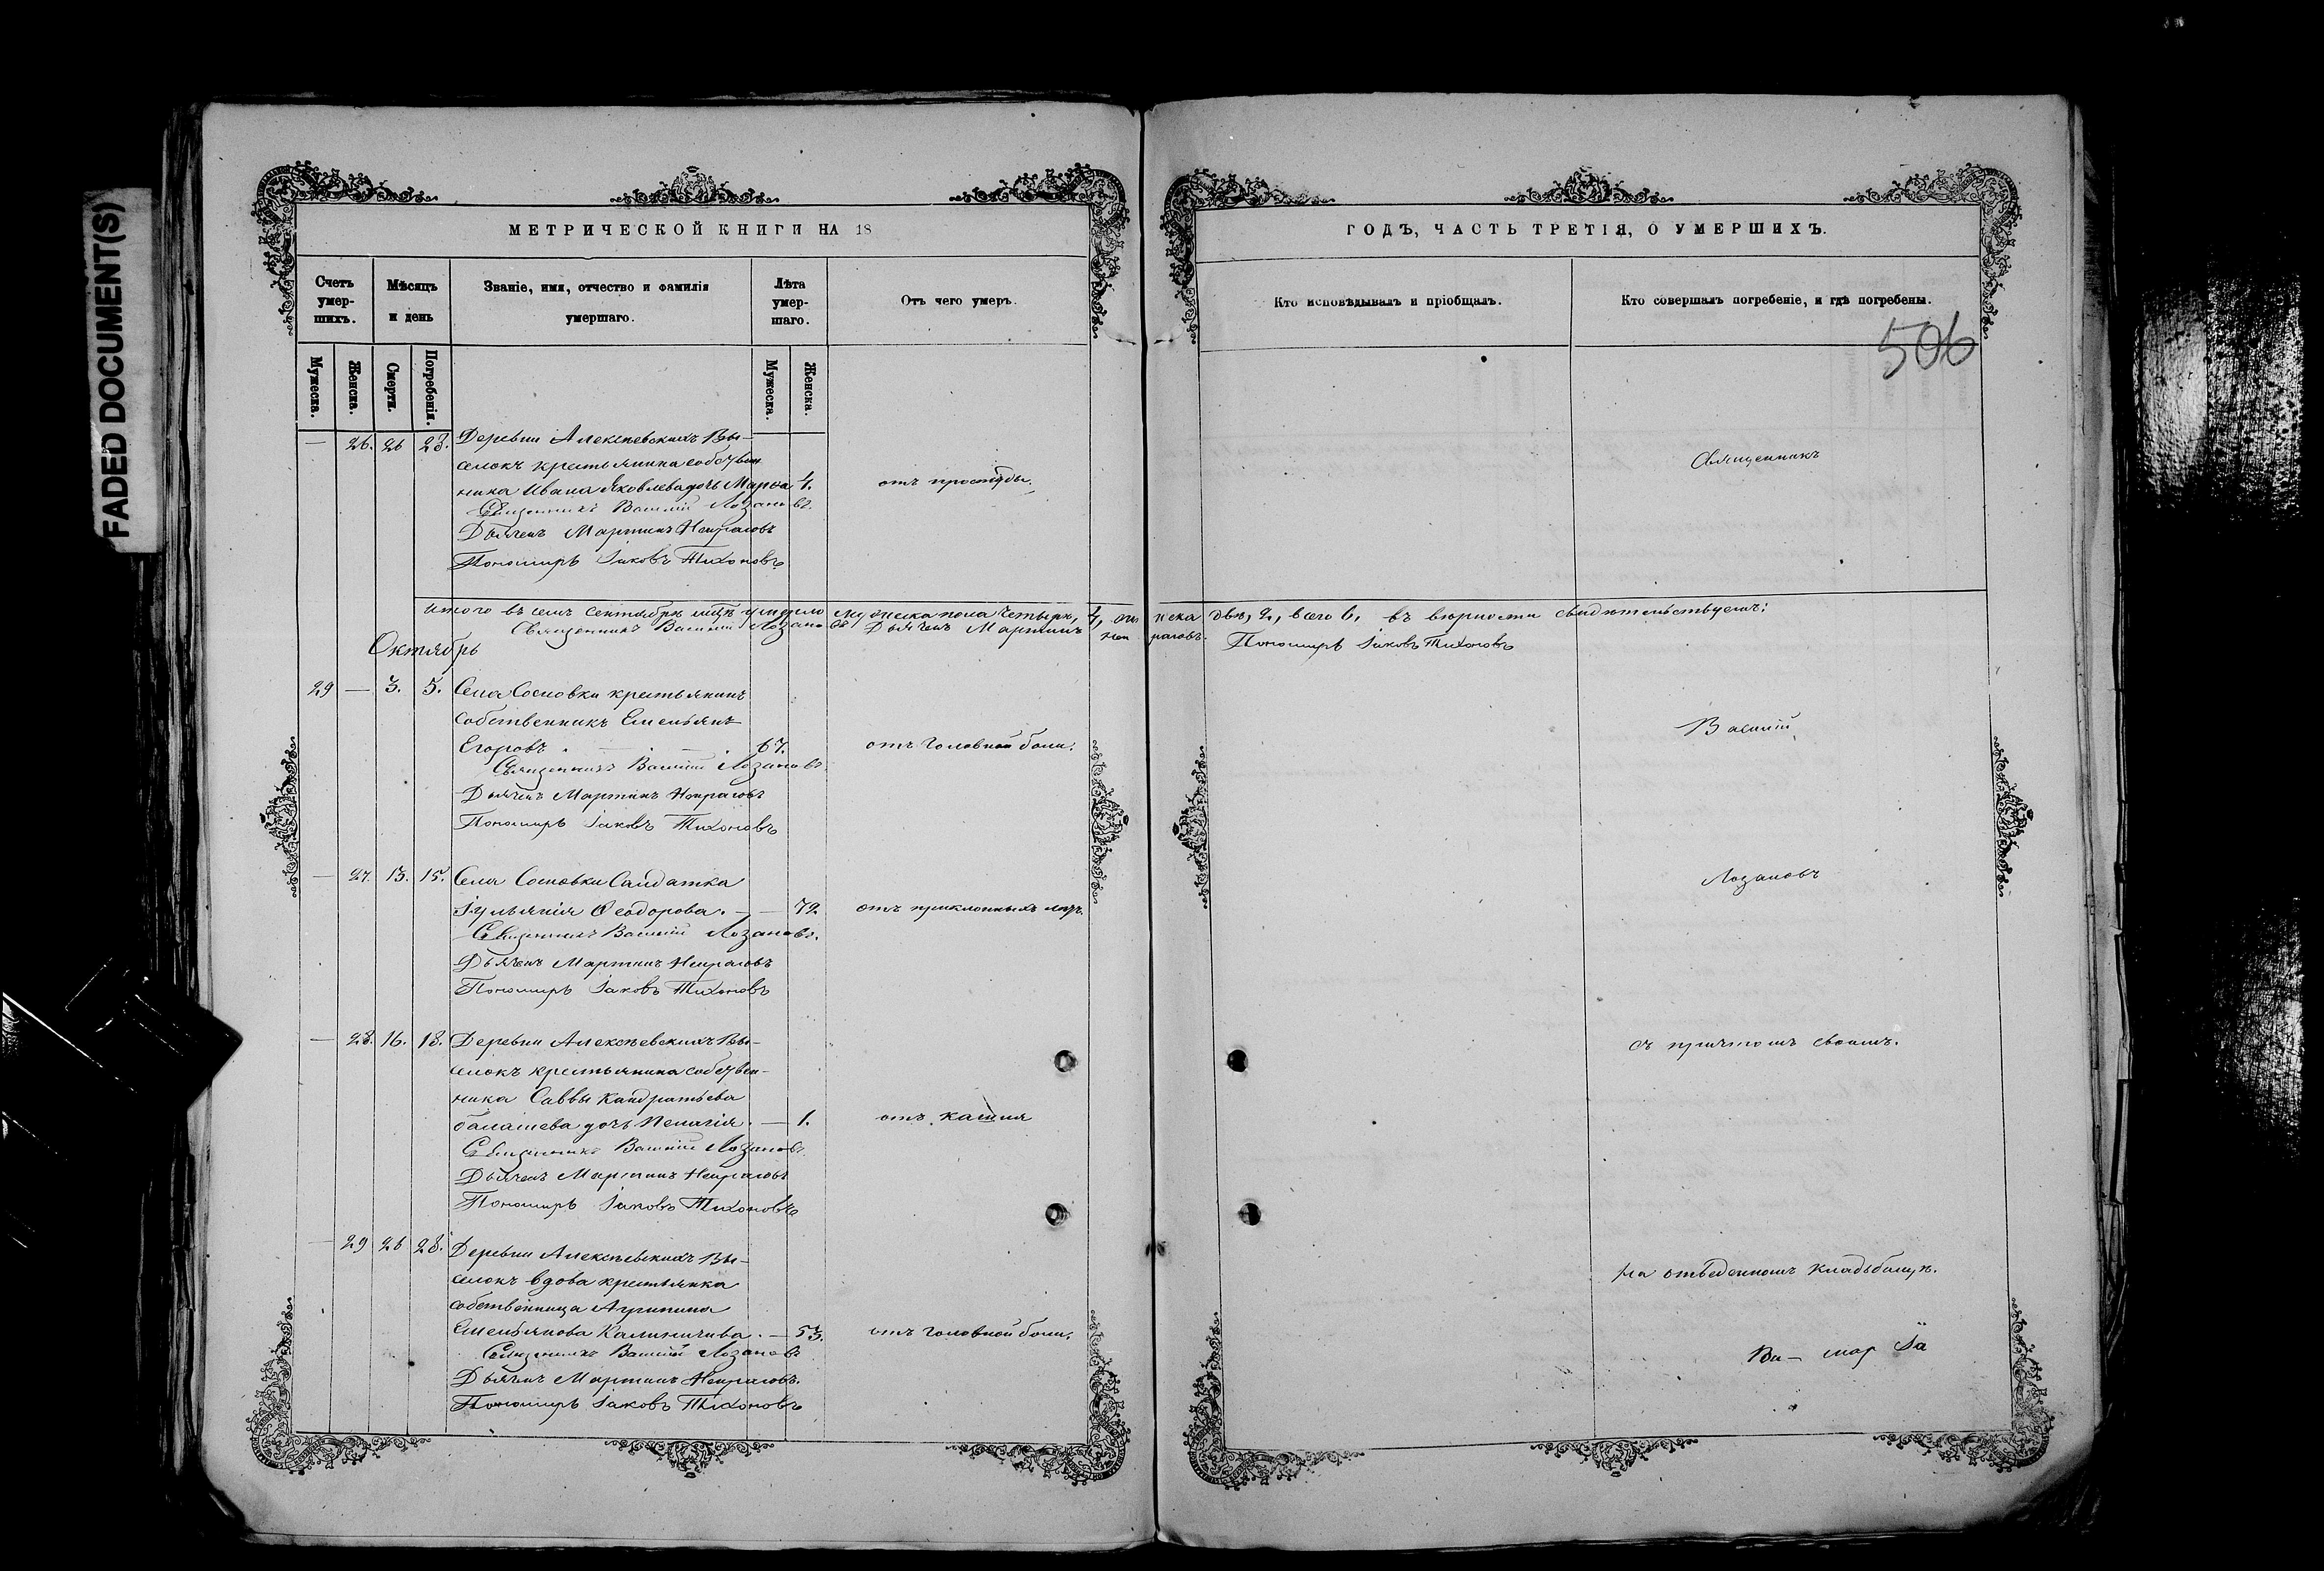 FADED DOCUMENT(S)
МЕТРИЧЕСКОЙ КНИГИ НА 18
Счетъ умер-шихъ.
Мѣсяцъ и день
Званіе, имя, отчество и фамилія умершаго.
Лѣта умер-шаго.
Отъ чего умеръ.
Мужеска.
Женска.
Смерти.
Погребенія.
Мужеска.
Женска.
— 26. 26 28. Деревни Алексѣевскихъ Вы-
селокъ крестьянина собствен
ника Ивана Яковлева дочь Марѳа 4. отъ простуды.
Священникъ Василій Лозановъ.
Дьячекъ Мартинъ Некрасовъ
Пономарь Іаковъ Тихоновъ
Итого въ семъ Сентябрѣ мцѣ умерло мужеска пола четыре, 4, женска двѣ, 2, всего 6, въ вѣрности свидѣтельствуемъ:
Священникъ Василій Лозановъ Дьячекъ Мартинъ Некрасовъ. Пономарь Іаковъ Тихоновъ
Октябрь
29 — 3. 5. Села Сосновки крестьянинъ
собственникъ Емельянъ
Егоровъ . — 67. отъ головной боли.
Священникъ Василій Лозановъ
Дьячекъ Мартинъ Некрасовъ
Пономарь Іаковъ Тихоновъ
— 27. 13. 15. Села Сосновки Салдатка
Іульянія Ѳеодорова. — — 72 отъ преклонныхъ лѣтъ.
Священникъ Василій Лозановъ.
Дьячекъ Мартинъ Некрасовъ
Пономарь Іаковъ Тихоновъ
— 28. 16. 18. Деревни Алексѣевскихъ Вы-
селокъ крестьянина собствен-
ника Саввы Кандратьева
балашева дочь Пелагія. — 1. отъ кашля
Священникъ Василій Лозановъ.
Дьячекъ Мартинъ Некрасовъ
Пономарь Іаковъ Тихоновъ
— 29 26 28. Деревни Алексѣевскихъ Вы-
селокъ вдова крестьянка
собственница Агрипина
Емельянова Калиничива. — 53. отъ головной боли.
Священникъ Василій Лозановъ
Дьячекъ Мартинъ Некрасовъ.
Пономарь Іаковъ Тихоновъ
ГОДЪ, ЧАСТЬ ТРЕТІЯ, О УМЕРШИХЪ.
Кто исповѣдывалъ и пріобщалъ.
Кто совершалъ погребеніе, и гдѣ погребены.
506
Священникъ
Василій
Лозановъ
съ причтомъ своимъ.
на отведенномъ кладбищѣ.
Ва— мар Іа